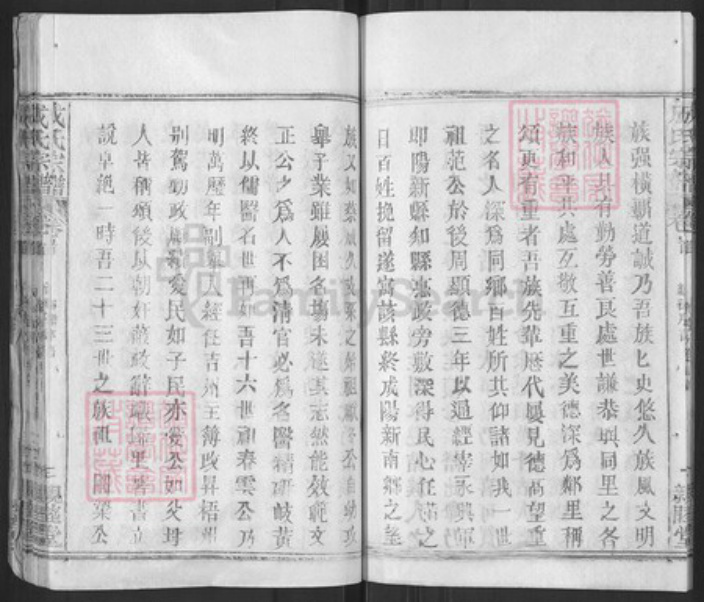 成氏宗譜
卷首
親睦堂
族强橫覇道誠乃吾族匕史悠久族風文明
族人具有勤勞善良處世謙恭與同里之各
族和平共處互敬互重之美德深爲鄰里稱
頌更有重者吾族先輩歷代屡見德高望重
之名人深爲同鄉百姓所共仰諸如我一世
祖范公於後周顯德三年以通經宰永興即
即陽新縣知縣惠政旁敷深得民心任滿之
日百姓挽留遂寓該縣終成陽新南鄉之
族又如蔡 久 之 祖 公自幼攻
舉子業雖屡困名塲未遂其志然能效範文
正公之爲人不爲清官必爲名醫精研岐黃
終以儒醫名世再如吾十六世祖春雲公乃
明萬曆年副舉人經任吉州主簿政昇梧州
别駕勤政 愛民如子民亦愛公如父母
人皆稱頌後以朝奸 政辭職 里 書立
說卓絶一時吾二十三世之族祖 闇 公
成氏宗譜
卷首
FamilySearch